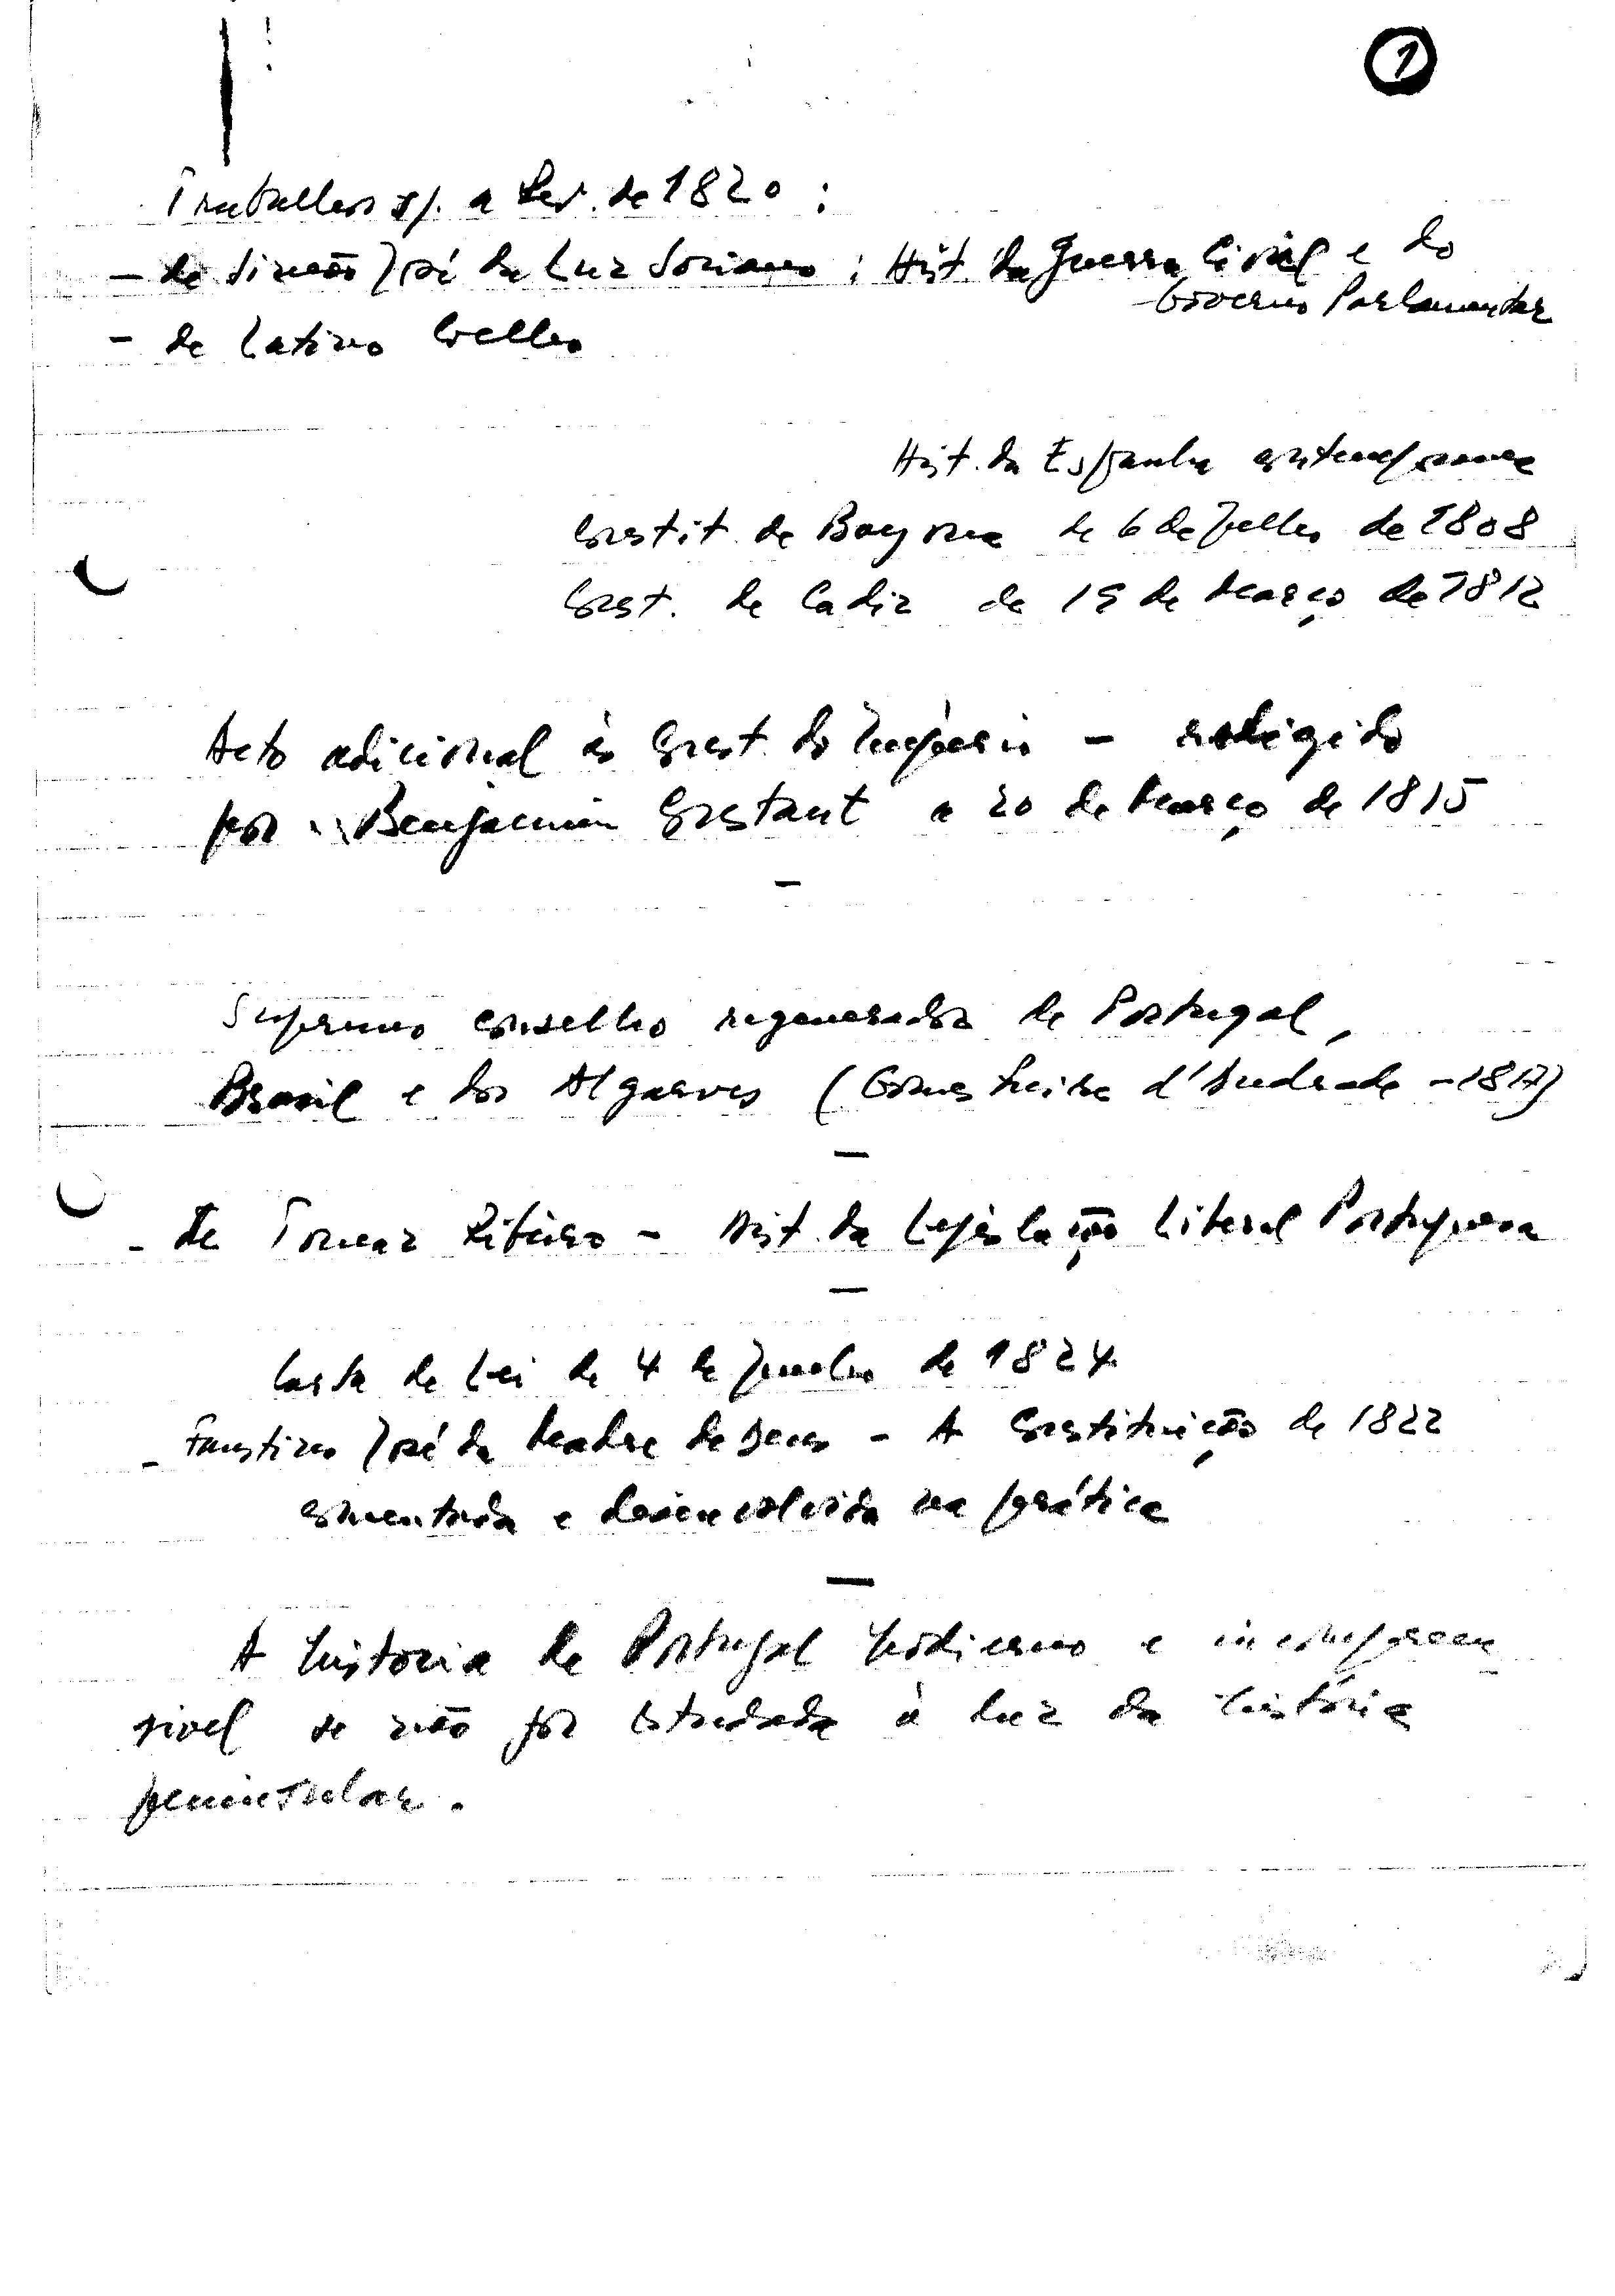 1
Trabalhos s/. a Rev. de 1820 :
- de Simão José da Luz Soriano : Hist. da Guerra Civil e do
Governo Parlamentar
- de Latino Coelho
Hist. da Espanha contemporanea
Constit. de Bayona de 6 de Julho de 1808
Const. de Cadiz de 19 de Março de 1812
Acto adicional às Const. do Império - redigido
por Benjamin Constant a 20 de Março de 1815
-
Supremo conselho regenerador de Portugal,
Brasil e dos Algarves (Gomes Freire d'Andrade - 1817)
-
- De Tomaz Ribeiro - Hist. da Legislação Liberal Portuguesa
-
Carta de Lei de 4 de Junho de 1824
- Faustino José da Madre de Deus - A Constituição de 1822
comentada e desenvolvida na prática
-
A historia de Portugal hodierno e incompreen
sivel se não for estudada à luz da história
peninsular.